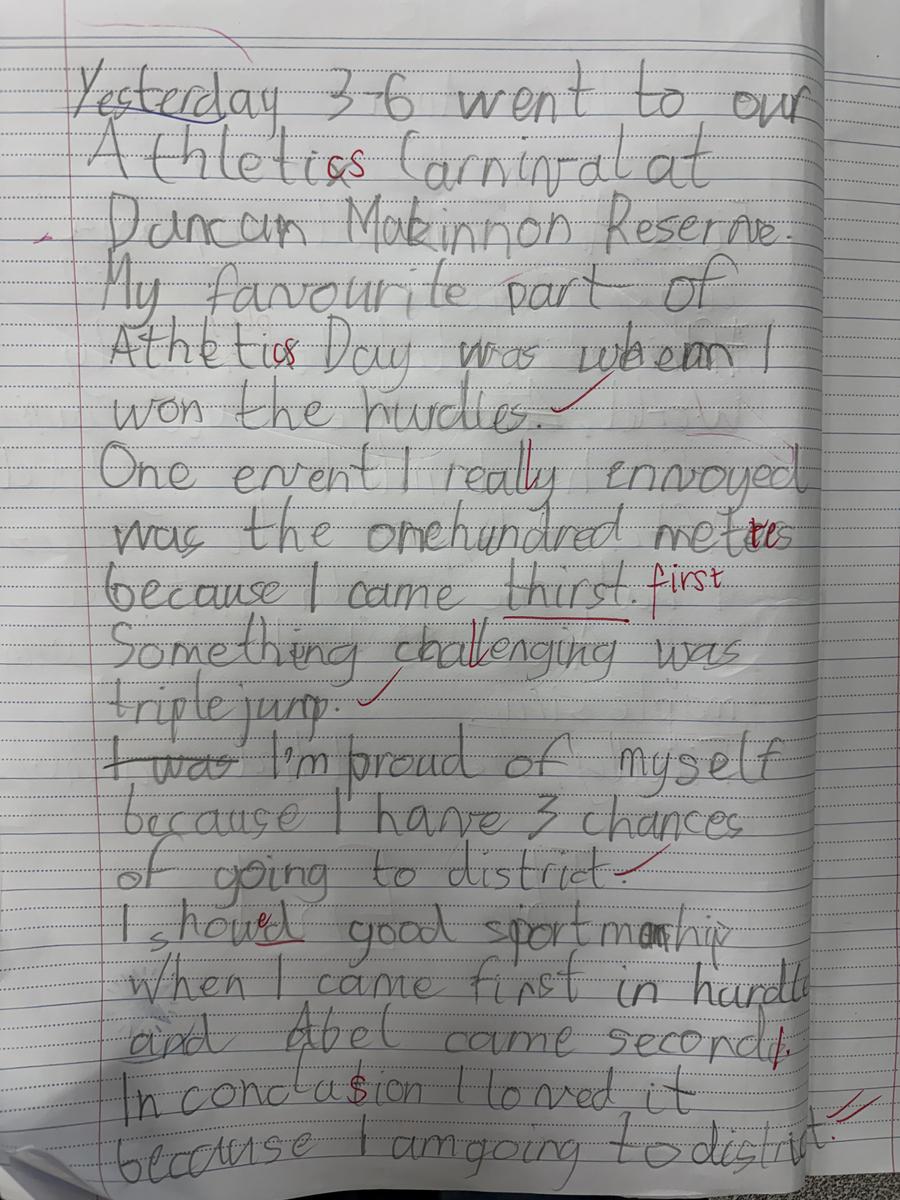 Yesterday 3-6 went to our
Athletics Carnival at
Duncan Makinnon Reserve.
My favourite part of
Athletics Day was when I
won the hurdles.
One event I really ennoyed
was the onehundred metres
because I came thirst. first
Something challenging was
triple jump.
I was I'm proud of myself
because I have 3 chances
of going to district.
I showed good sportmanship
When I came first in hurdle
and Abel came second.
In conclusion I loved it
because I am going to district.